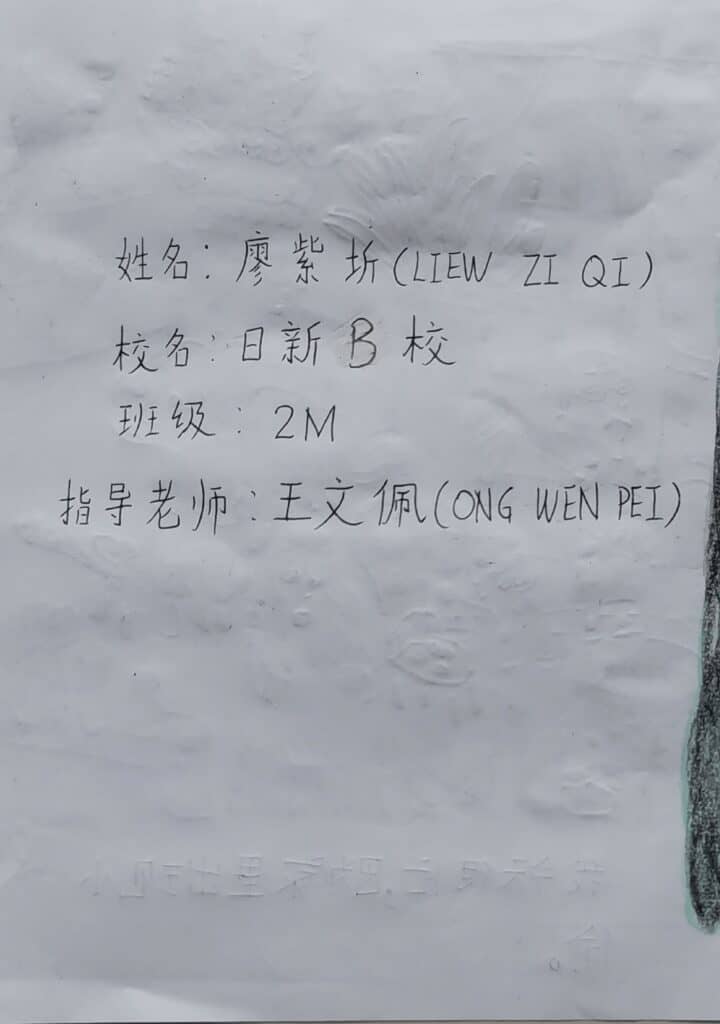 姓名：廖紫圻(LIEW ZI QI)
校名：日新B校
班级：2M
指导老师：王文佩(ONG WEN PEI)